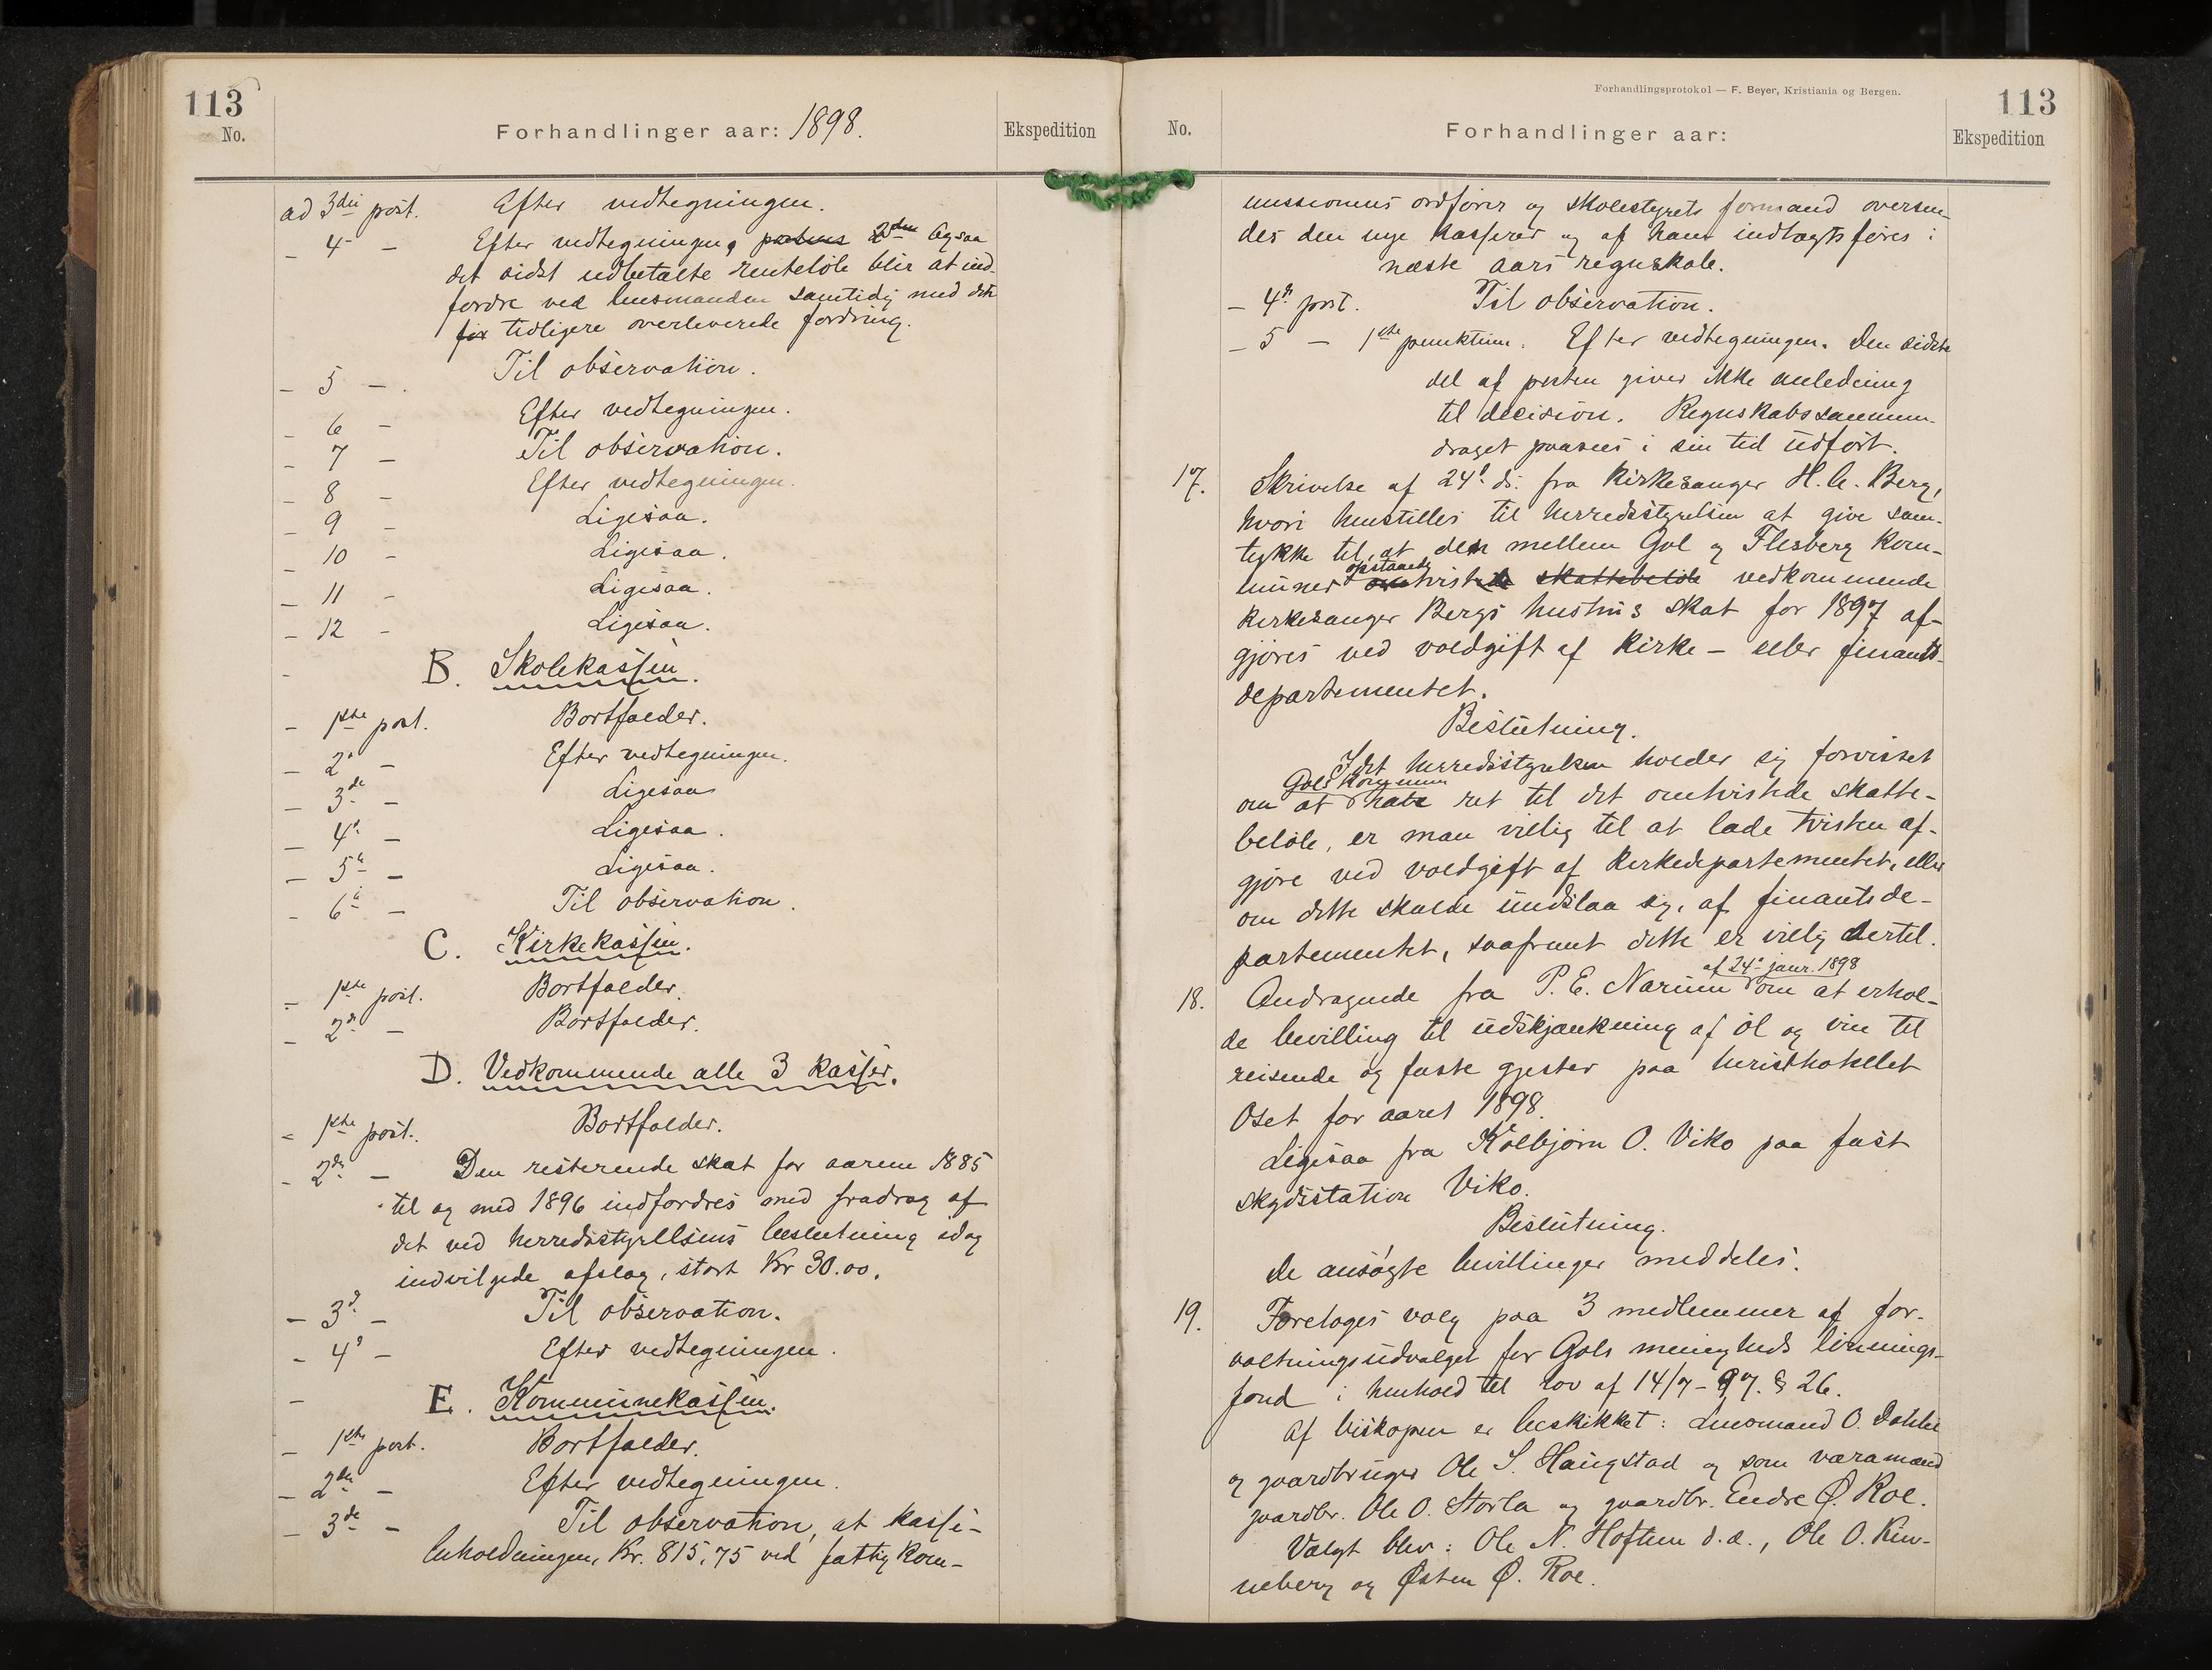 113
No.
Forhandlinger aar: 1898.
Ekspedition
ad 3die post. Efter vedtegningen.
- 4 - Efter vedtegningen, postens 2den Ogsaa
det sidst udbetalte renteløb blir at ind-
fordre ved lensmanden samtidig med det
før tidligere overleverede fordring.
- 5 - . Til observation.
- 6 - Efter vedtegningen.
- 7 - Til observation.
- 8 - Efter vedtegningen.
- 9 - Ligesaa.
- 10 - Ligesaa.
- 11 - Ligesaa.
- 12 - Ligesaa.
- B. Skolekassen.
- 1ste post. Bortfalder.
- 2d - Efter vedtegningen.
- 3de - Ligesaa
- 4d - Ligesaa.
- 5te - Ligesaa.
- 6te - Til observation.
C. Kirkekassen.
- 1ste post. Bortfalder.
- 2d - Bortfalder.
D. Vedkommende alle 3 kasser.
- 1ste post. Bortfalder.
- 2de - Den resterende skat for aarene 1885
til og med 1896 indfordres med fradrag af
det ved herredsstyrelsens beslutning idag
indvilgede afslag, stort Kr 30.00.
- 3d - Til observation.
- 4d - Efter vedtegningen.
- E. Kommunekassen.
- 1ste post. Bortfalder.
- 2den - Efter vedtegningen.
- 3de - Til observation, at kasse-
beholdningen, Kr. 815,75 ved fattigkom-
Forhandlingsprotokol — F. Beyer, Kristiania og Bergen.
113
No.
Forhandlinger aar:
Ekspedition
missionens ordfører og skolestyrets formand oversen-
des den nye kasserer og af ham indtægtsføres i
næste aars regnskab.
- 4d post. Til observation.
- 5 - 1ste punktum. Efter vedtegningen. Den sidste
del af posten giver ikke anledning
til decision. Regnskabssammen-
draget paasees i sin tid udført.
17. Skrivelse af 24d ds. fra kirkesanger H. C. Berg,
hvori henstilles til herredsstyrelsen at give sam-
tykke til, at den mellem Gol og Flesberg kom-
muner opstaaede omtvistede skattebeløb vedkommende
kirkesanger Bergs hustrus skat for 1897 af-
gjøres ved voldgift af kirke- eller finants-
departementet.
Beslutning.
Idet herredsstyrelsen holder sig forvisset
om at Gols kommune have ret til det omtvistede skatte-
beløb, er man villig til at lade tvisten af-
gjøre ved voldgift af kirkedepartementet, eller
om dette skulde undslaa sig, af finantsde-
partementet, saafremt dette er villig dertil.
18. Andragende fra P. E. Narum af 24d janr. 1898 om at erhol-
de bevilling til udskjænkning af øl og vin til
reisende og faste gjester paa turisthotellet
Oset for aaret 1898.
Ligesaa fra Kolbjørn O. Viko paa fast
skydsstation Viko.
Beslutning.
De ansøgte bevillinger meddeles.
19. Foretoges valg paa 3 medlemmer af for-
valtningsudvalget for Gols menigheds lønnings-
fond i henhold til lov af 14/7-97. § 26.
Af biskopen er beskikket: Lensmand O. Dahle
og gaardbruger Ole S. Haugstad og som varamænd
gaardbr. Ole O. Storla og gaardbr. Endre Ø. Roe.
Valgt blev: Ole N. Hoftun d.æ., Ole O. Kin-
neberg og Østen Ø. Roe.